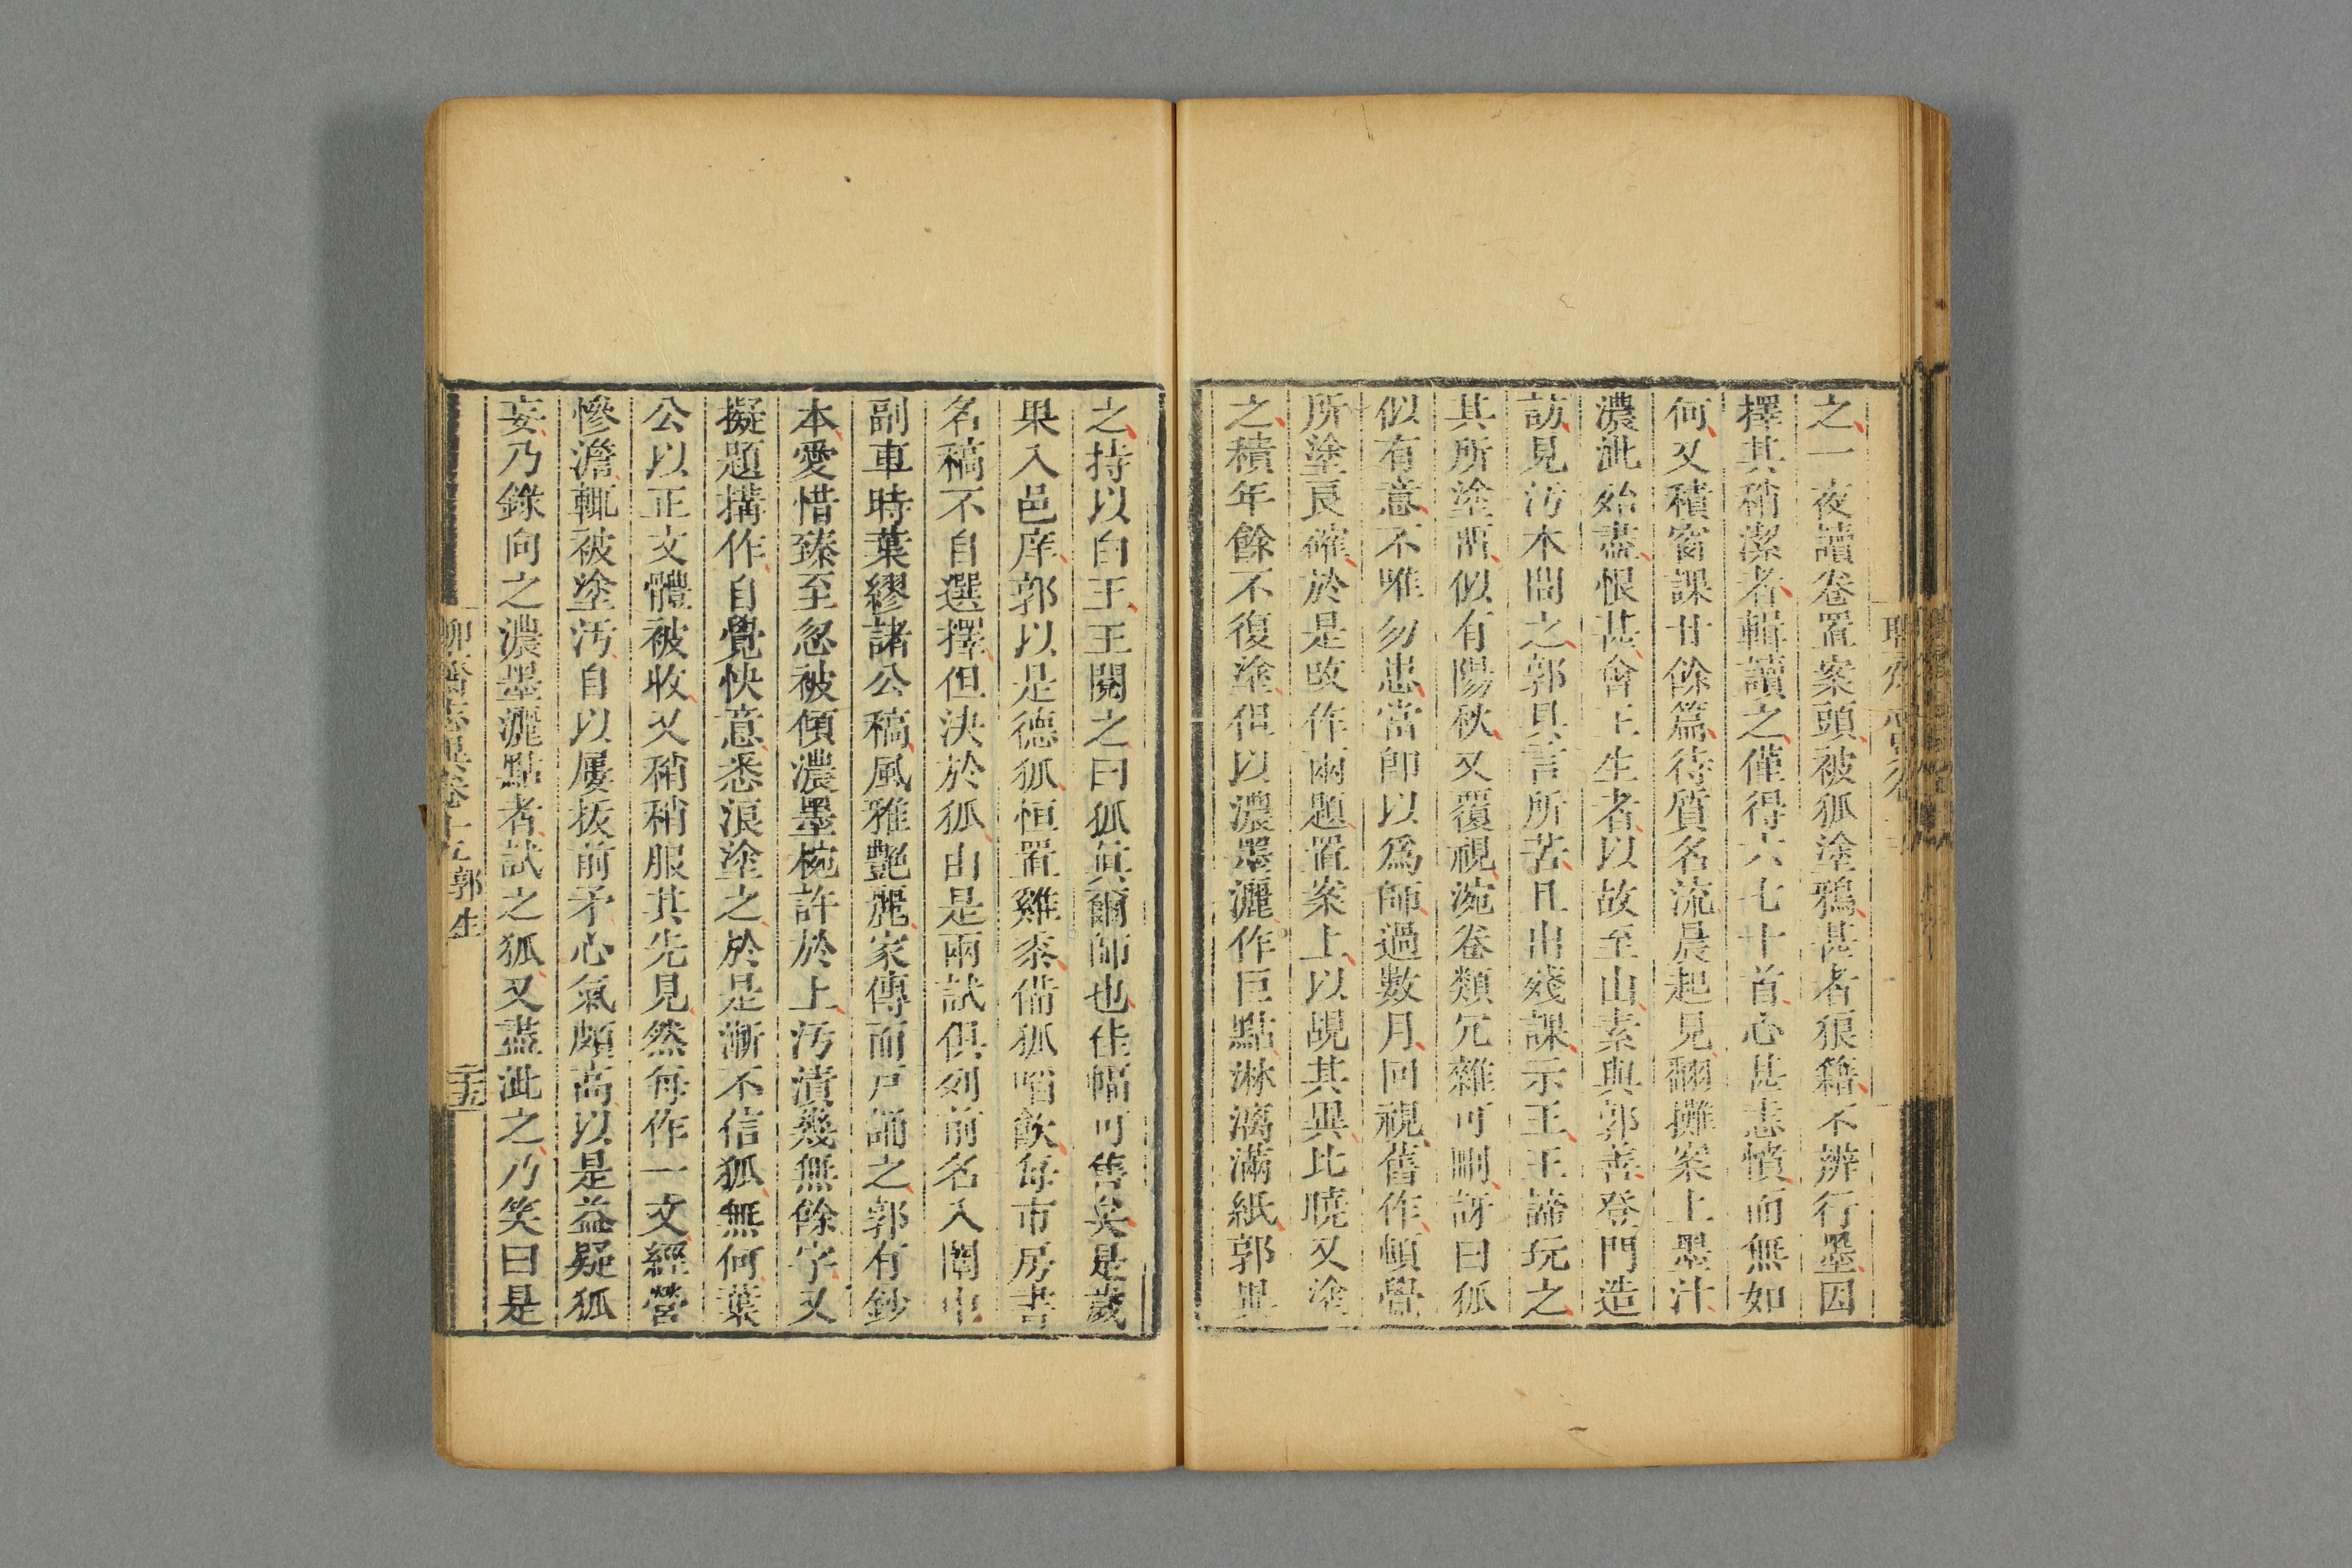 之一夜讀卷置案頭被狐塗鴉甚者狼籍不辨行墨因
擇其稍潔者輯讀之僅得六七十首心甚恚憤而無如
何又積窗課廿餘篇待質名流晨起見翻攤案上墨汁
濃泚殆盡恨甚會王生者以故至山素與郭善登門造
訪見污本問之郭具言所苦且出殘課示王王諦玩之
其所塗留似有陽秋又覆視涴卷類冗雜可刪訝曰狐
似有意不唯勿患當卽以爲師過數月回視舊作頓覺
所塗良確於是改作兩題置案上以覘其異比曉又塗
之積年餘不復塗但以濃墨灑作巨點淋漓滿紙郭異
之持以白王王閱之曰狐眞爾師也佳幅可售矣是歲
果入邑庠郭以是德狐恒置雞黍備狐啗飲每市房書
名稿不自選擇但決於狐由是兩試俱列前名入闈中
副車時葉繆諸公稿風雅艷麗家傳而戸誦之郭有鈔
本愛惜臻至忽被傾濃墨椀許於上汚漬幾無餘字又
擬題搆作自覺快意悉浪塗之於是漸不信狐無何葉
公以正文體被收又稍稍服其先見然每作一文經營
慘澹輒被塗汚自以屢拔前矛心氣頗高以是益疑狐
妄乃錄向之濃墨灑點者試之狐又盡泚之乃笑曰是
聊齋志異卷十五 郭生 二十五